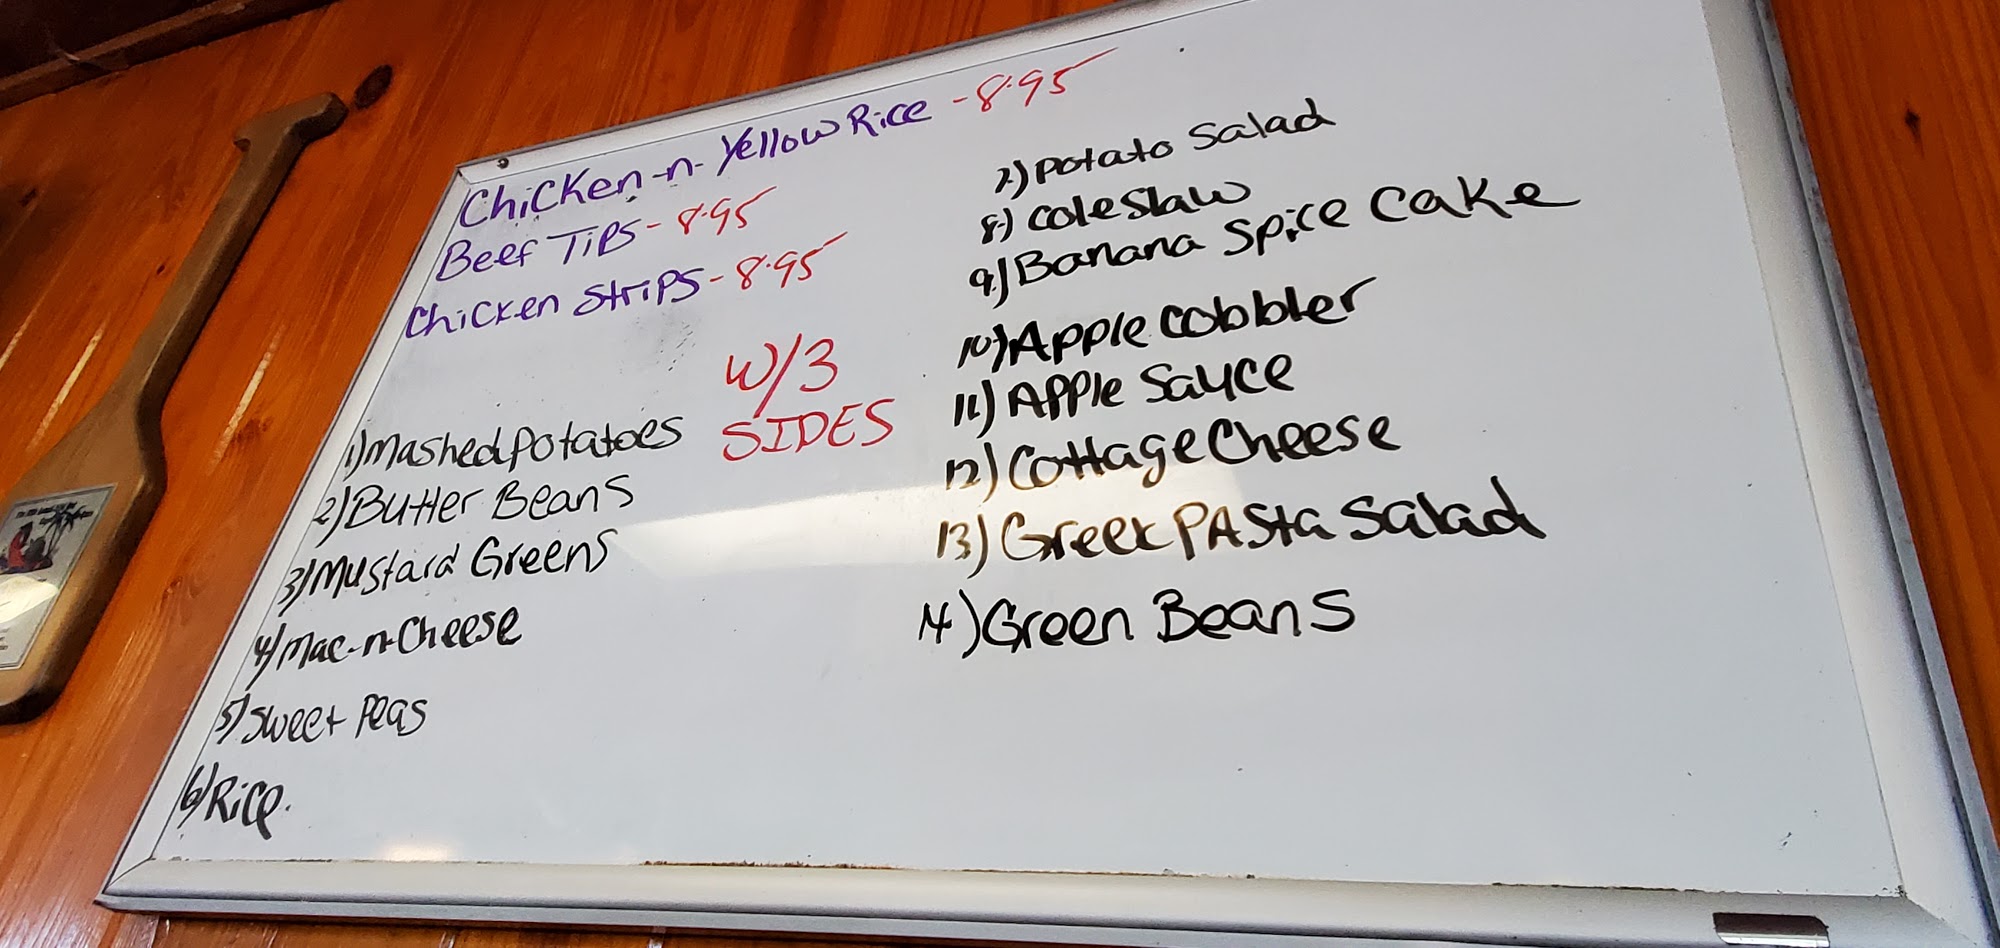 Chicken-n-Yellow Rice - 8.95
Beef Tips - 8.95
Chicken Strips - 8.95
W/3
SIDES
1) Mashed Potatoes
2) Butter Beans
3) Mustard Greens
4) Mac-n-Cheese
5) Sweet Peas
6) Rice.
7.) Potato Salad
8.) Coleslaw
9.) Banana Spice Cake
10) Apple Cobbler
11.) Apple Sauce
12) Cottage Cheese
13) Greek Pasta Salad
14) Green Beans